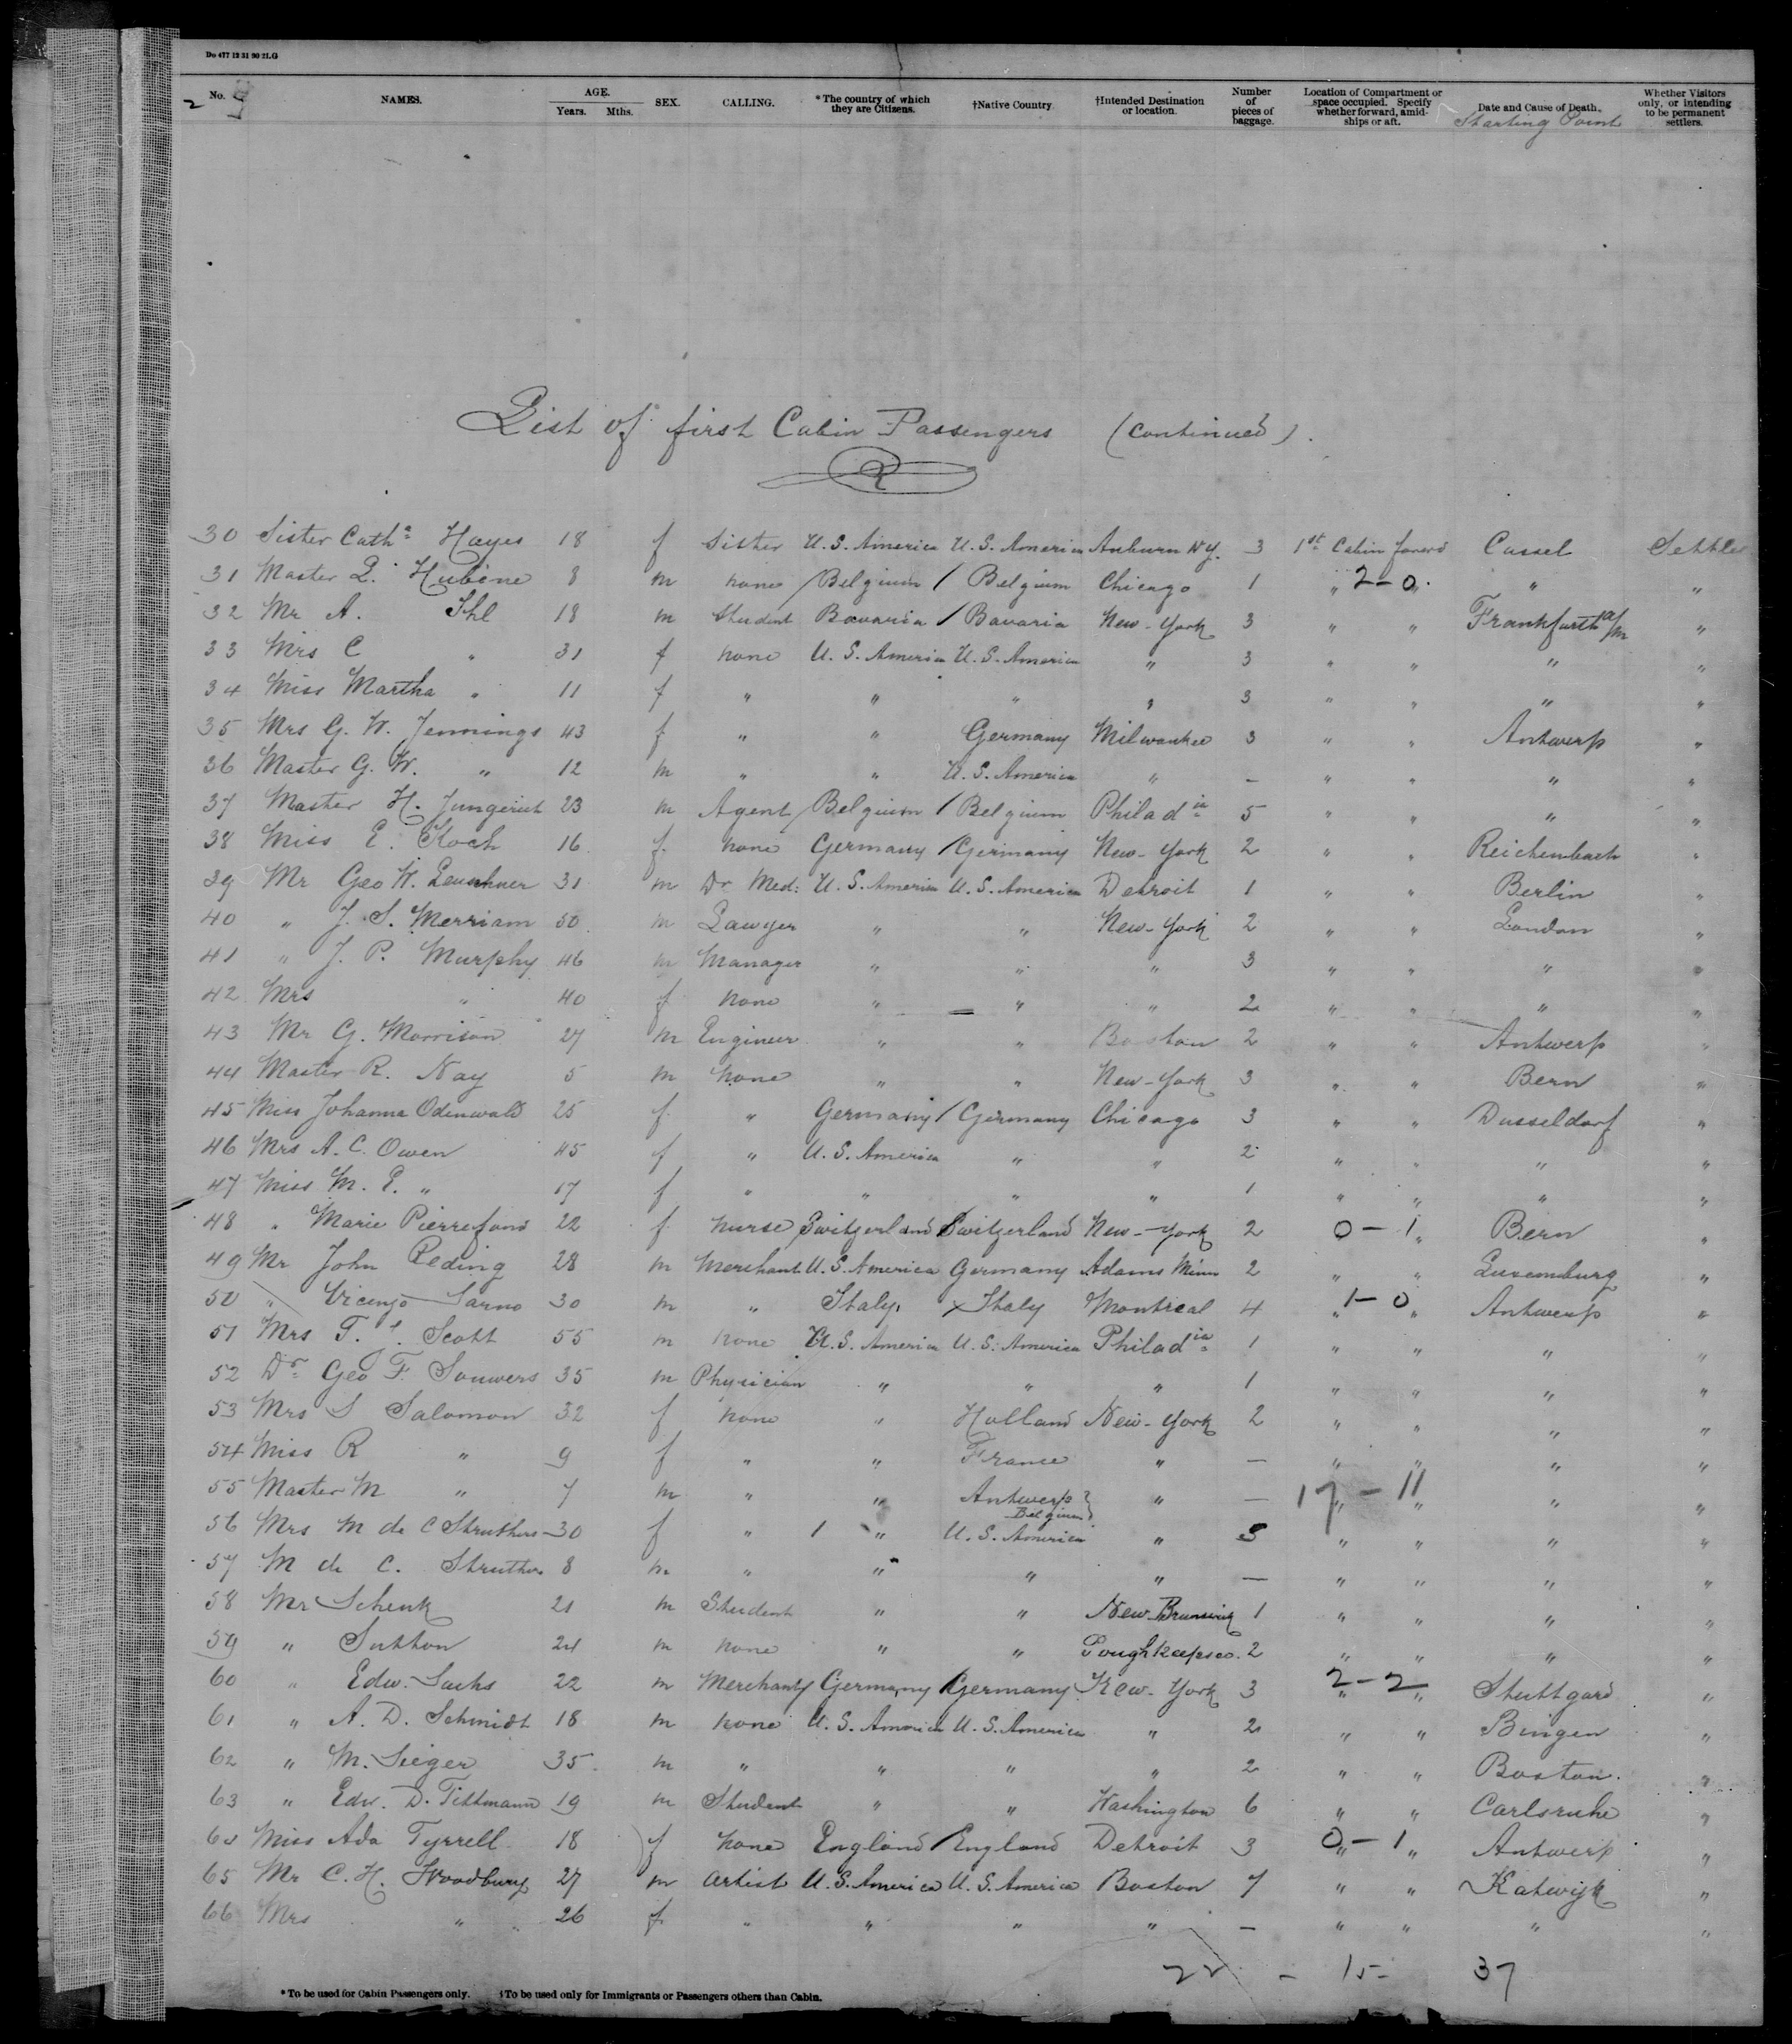 Do 477 12 31 90 2LG
2 No. NAMES. AGE. Years. Mths. SEX. CALLING. *The country of which they are Citizens. †Native Country. †Intended Destination or location. Number of pieces of baggage. Location of Compartment or space occupied. Specify whether forward, amidships or aft. Date and Cause of Death. Starting Point Whether Visitors only, or intending to be permanent settlers.
List of first Cabin Passengers (continued).
30 Sister Cath.a Hayes 18 f Sister U.S. America U.S. America Auburn N.Y. 3 1st Cabin forerd Cassel Settler
31 Master L. Hubène 8 m none / Belgium / Belgium Chicago 1 " 2-0 " " "
32 Mr A. Ihl 18 m Student Bavaria / Bavaria New-York 3 " " Frankfurth a/m "
33 Mrs C " 31 f none U.S. America U.S. America " 3 " " " "
34 Miss Martha " 11 f " " " " 3 " " " "
35 Mrs G. W. Jennings 43 f " " Germany Milwaukee 3 " " Antwerp "
36 Master G. W. " 12 m " " U.S. America " - " " " "
37 Master H. Jungerich 23 m Agent / Belgium / Belgium Philad.ia 5 " " " "
38 Miss E. Koch 16 f. none Germany / Germany New-York 2 " " Reichenbach "
39 Mr Geo W. 31 m Dr Med: U.S. America U.S. America Detroit 1 " " Berlin "
40 " J. S. Merriam 50 m Lawyer " " New-York 2 " " London "
41 " J. P. Murphy 46 m Manager " " " 3 " " " "
42 Mrs " 40 f none " - " " 2 " " " "
43 Mr G. Morrison 27 m Engineer " " Boston 2 " " Antwerp "
44 Master R. Nay 5 m none " " New-York 3 " " Bern "
45 Miss Johanna Odenwald 25 f. " Germany / Germany Chicago 3 " " Dusseldorf "
46 Mrs A. C. Owen 45 f " U.S. America " " 2 " " " "
47 Miss M. E. " 17 f " " " " 1 " " " "
48 " Marie Pierrefond 22 f. nurse Switzerland Switzerland New-York 2 0-1 " Bern "
49 Mr John Reding 28 m Merchant U.S. America Germany Adams Minn 2 " " Luxemburg "
50 " Vicenzo Sarno 30 m " Italy. x Italy Montreal 4 " 1-0 " Antwerp "
51 Mrs T. Scott 55 m none U.S. America U.S. America Philad.ia 1 " " " "
52 Dr. Geo F. Souwers 35 m Physician " " " 1 " " " "
53 Mrs S Salomon 32 f none " Holland New-York 2 " " " "
54 Miss R " 9 f " " France " - " " " "
55 Master M " 7 m " " Antwerp Belgium } " - 17 - 11 " " " "
56 Mrs M de C Struthers 30 f " 1 " U.S. America " 5 " " " "
57 M de C. Struthers 8 m " " " " - " " " "
58 Mr Schenk 21 m Student " " New-Brunswick 1 " " " "
59 " Sutton 24 m none " " Poughkeepsee. 2 " " " "
60 " Edw. Sachs 22 m Merchant / Germany / Germany New-York 3 " 2-2 " Stuttgard "
61 " A. D. Schmidt 18 m none U.S. America U.S. America " 2 " " Bingen "
62 " M. Sieger 35 m " " " " 2 " " Boston. "
63 " Edw. D. Tittmann 19 m Student " " Washington 6 " " Carlsruhe "
64 Miss Ada Tyrrell 18 f none England / England Detroit 3 " 0-1 " Antwerp "
65 Mr C. H. Woodbury 27 m Artist U.S. America U.S. America Boston 7 " " Katwijk "
66 Mrs " " 26 f. " " " " - " " " "
22 - 15 - 37
*To be used for Cabin Passengers only. †To be used only for Immigrants or Passengers others than Cabin.